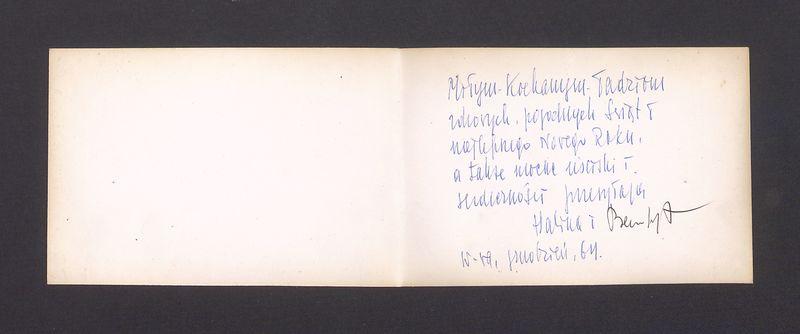 Miłym-Kochanym-Tadziom
zdrowych, pogodnych Świąt i
najlepszego Nowego Roku,
a także mocne uściski i
serdeczności przesyłają
Halina i
W-wa, grudzień, 64.